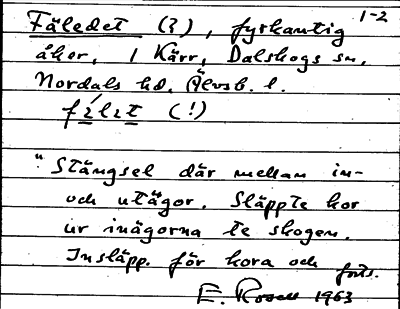 1-2
Fäledet (?), fyrkantig
åker, i Kärr, Dalskogs sn,
Nordals hd. Älvsb. l.
(!)
"Stängsel där mellan in-
och utägor. Släppte kor
ur inägorna te skogen.
Insläpp. för kora och
forts.
E. Rosell 1963